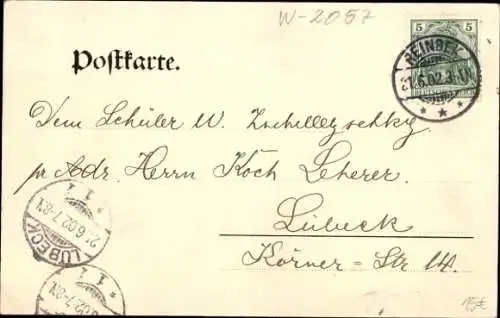 W-2057
5 5
Postkarte.
REINBEK
21.6.02.3-4N.
Dem Schüler W.
pr Adr. Herrn Koch Lehrer.
Lübeck
Körner-Str 14.
LÜBECK
21.6.02.7-8N.
1
LÜBECK
6.02.7-8N.
1
15€